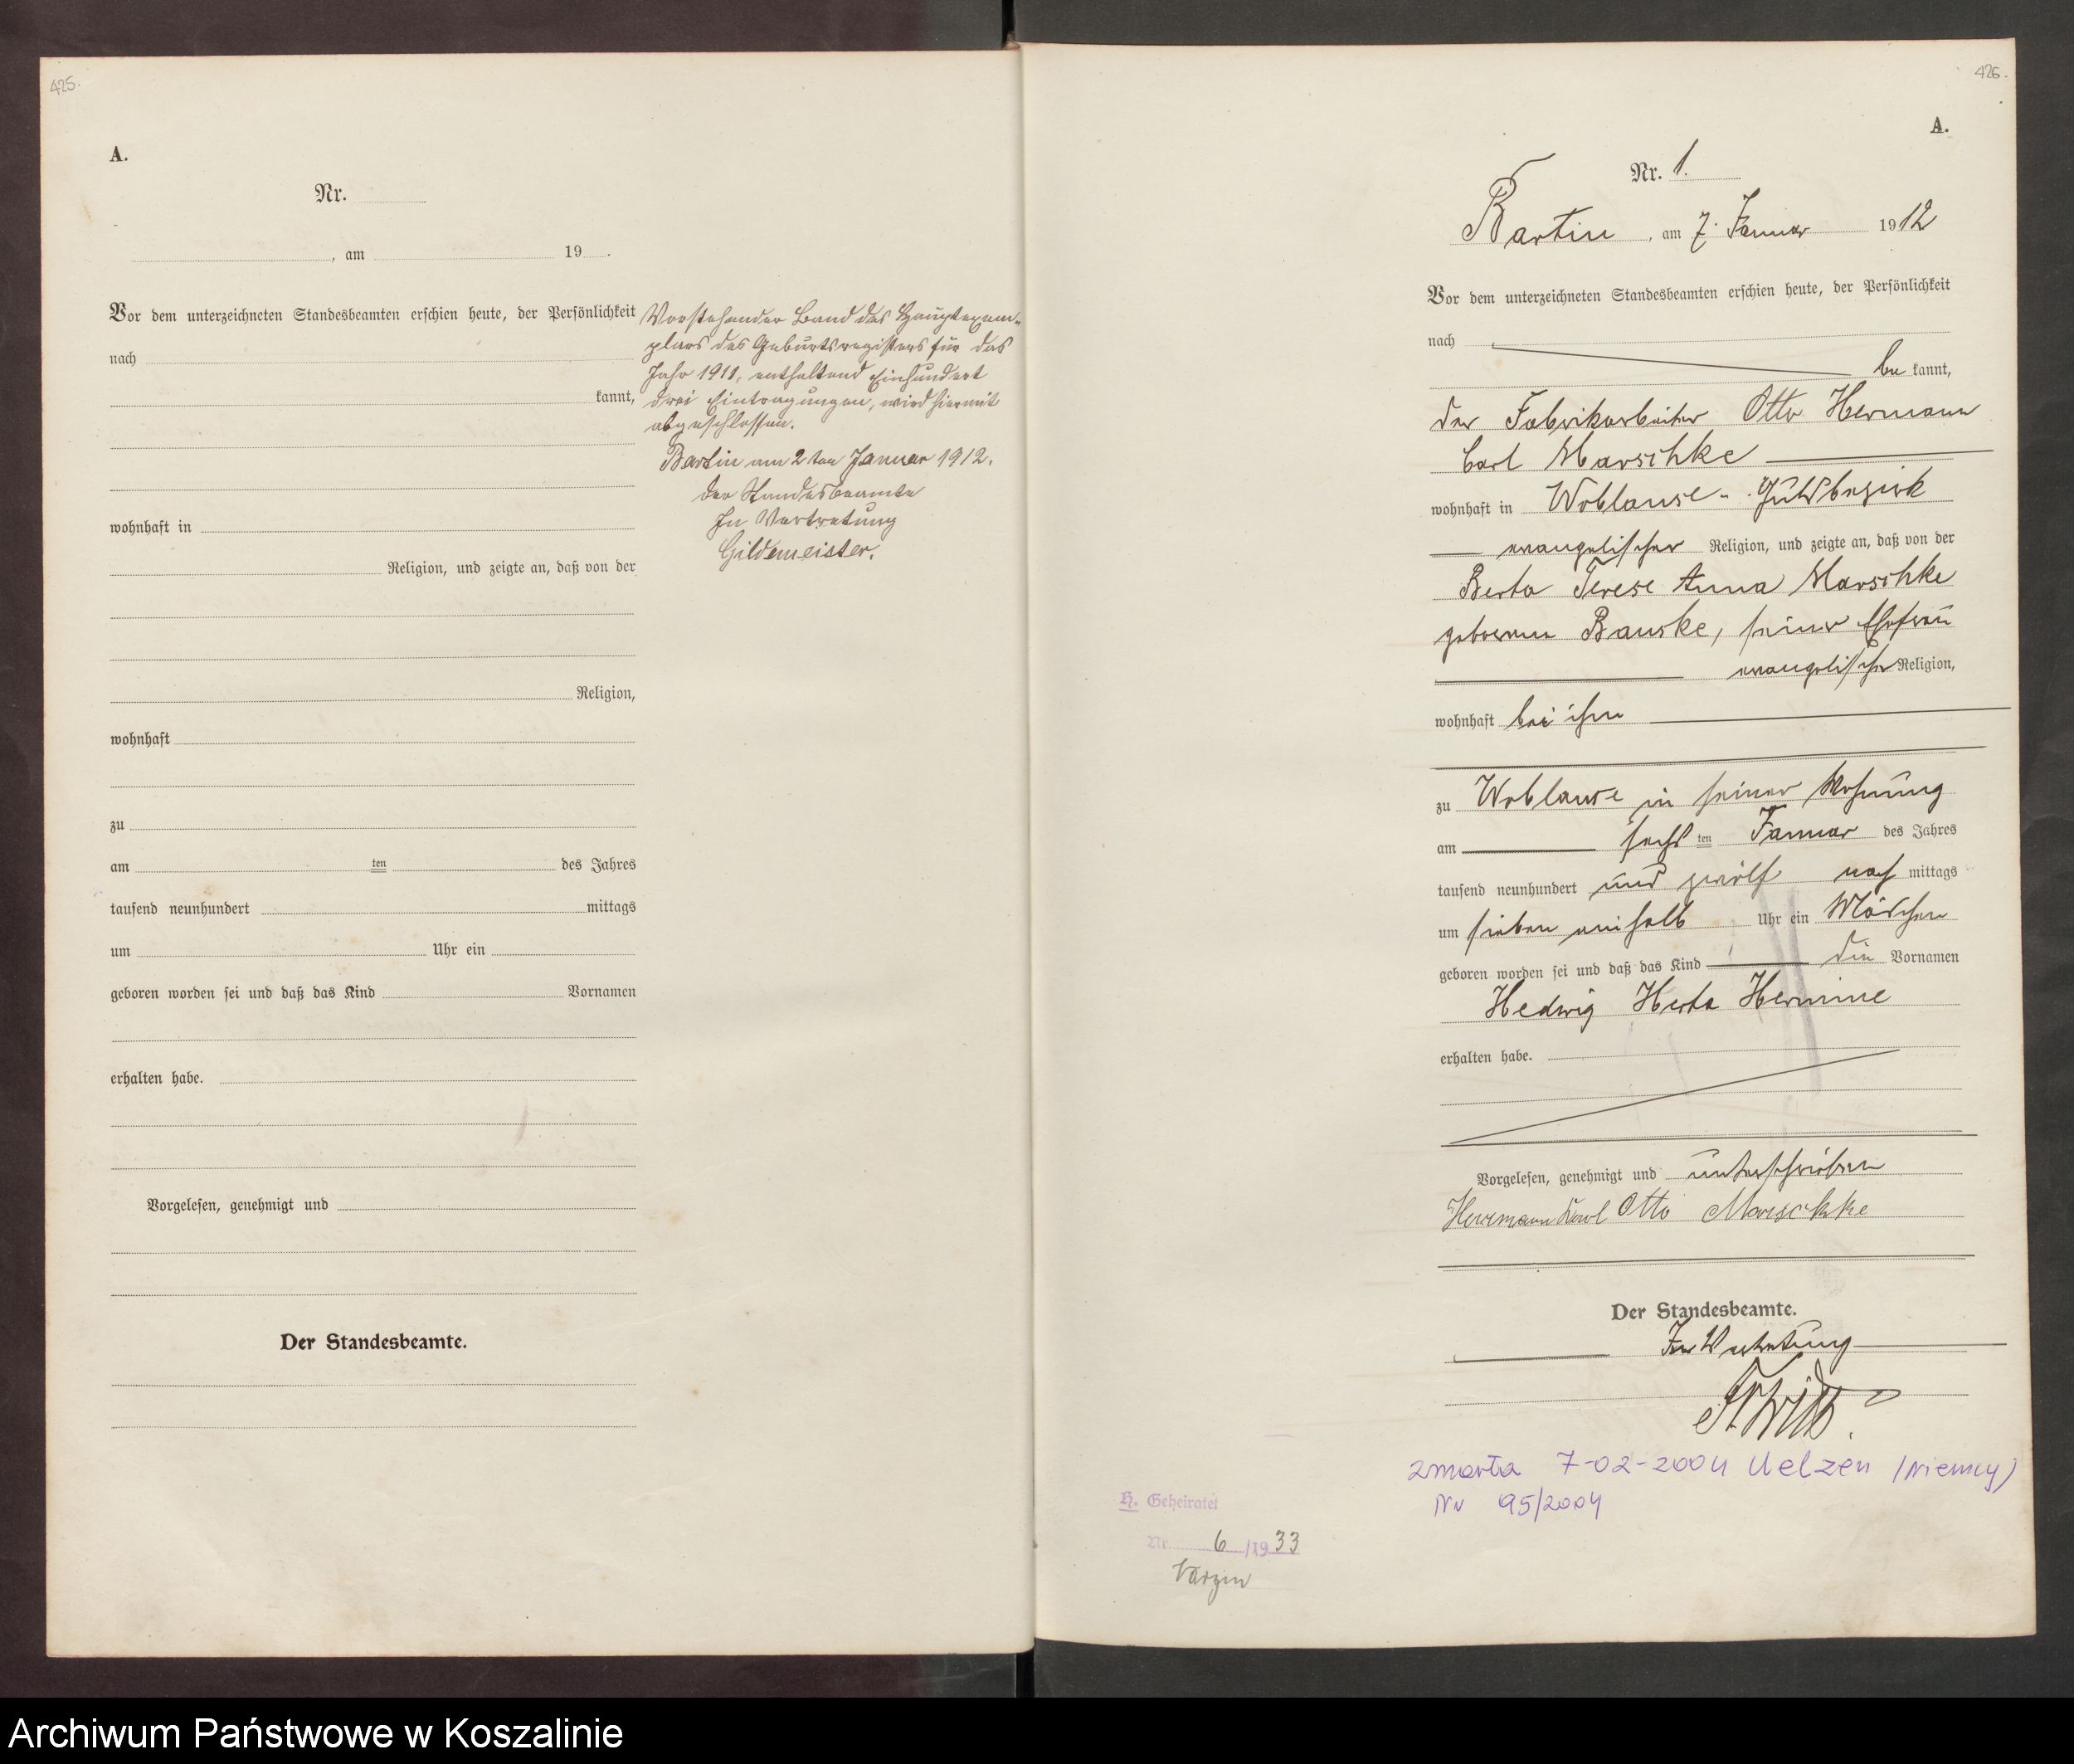 425.
A.
Nr.
, am 19 .
Vor dem unterzeichneten Standesbeamten erschien heute, der Persönlichkeit
nach
kannt,
wohnhaft in
Religion, und zeigte an, daß von der
Religion,
wohnhaft
zu
am ten des Jahres
tausend neunhundert mittags
um Uhr ein
geboren worden sei und daß das Kind Vornamen
erhalten habe.
Vorgelesen, genehmigt und
Der Standesbeamte.
Vorstehender Band des Hauptexem-
plars des Geburtsregisters für das
Jahr 1911, enthaltend Einhundert
drei Eintragungen, wird hiermit
abgeschlossen.
Bartin am 2 ten Januar 1912.
Der Standesbeamte
In Vertretung
Gildemeister.
426.
A.
Nr. 1.
Bartin, am 7. Januar 1912
Vor dem unterzeichneten Standesbeamten erschien heute, der Persönlichkeit
nach
be kannt,
der Fabrikarbeiter Otto Hermann
Carl Marschke
wohnhaft in Woblanse - Gutsbezirk
evangelischer Religion, und zeigte an, daß von der
Berta Terese Anna Marschke
geborenen Banske, seiner Ehefrau
evangelischer Religion,
wohnhaft bei ihm
zu Woblanse in seiner Wohnung
am sechs ten Januar des Jahres
tausend neunhundert und zwölf nach mittags
um sieben einhalb Uhr ein Mädchen
geboren worden sei und daß das Kind die Vornamen
Hedwig Herta Hermine
erhalten habe.
Vorgelesen, genehmigt und unterschrieben
Herrmann Karl Otto Marschke
Der Standesbeamte.
In Vertretung
zmarła 7-02-2004 Uelzen (Niemcy)
Nr 95/2004
H. Geheiratet
Nr. 6 /1933
Varzin
Archiwum Państwowe w Koszalinie